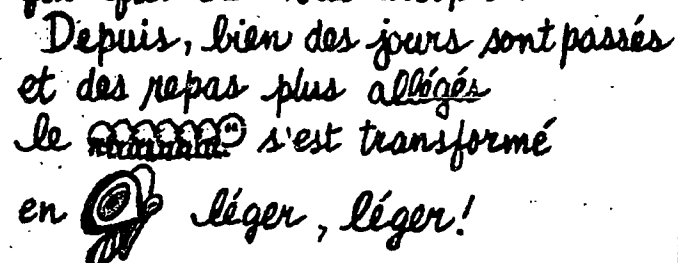 Depuis, bien des jours sont passés
et des repas plus allégés
le s'est transformé
en léger, léger!